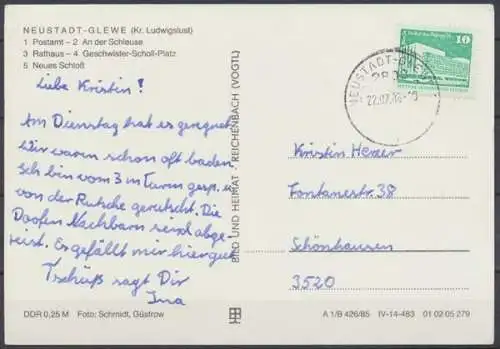 NEUSTADT-GLEWE (Kr. Ludwigslust)
1 Postamt – 2 An der Schleuse
3 Rathaus – 4 Geschwister-Scholl-Platz
5 Neues Schloß
Liebe Kristin!
Am Dienstag hat es geregnet.
Wir waren schon oft baden.
Ich bin vom 3 m Turm gesp. u.
von der Rutsche gerutscht. Die
Doofen Nachbarn sind abge-
reist. Es gefällt mir hier gut
Tschüß sagt Dir
Ina
DDR 0,25 M Foto: Schmidt, Güstrow
BILD UND HEIMAT REICHENBACH (VOGTL)
NEUSTADT-GLEWE
10
Kristin
Fontanestr. 38
Schönhausen
3520
A 1/B 426/85 IV-14-483 01 02 05 279